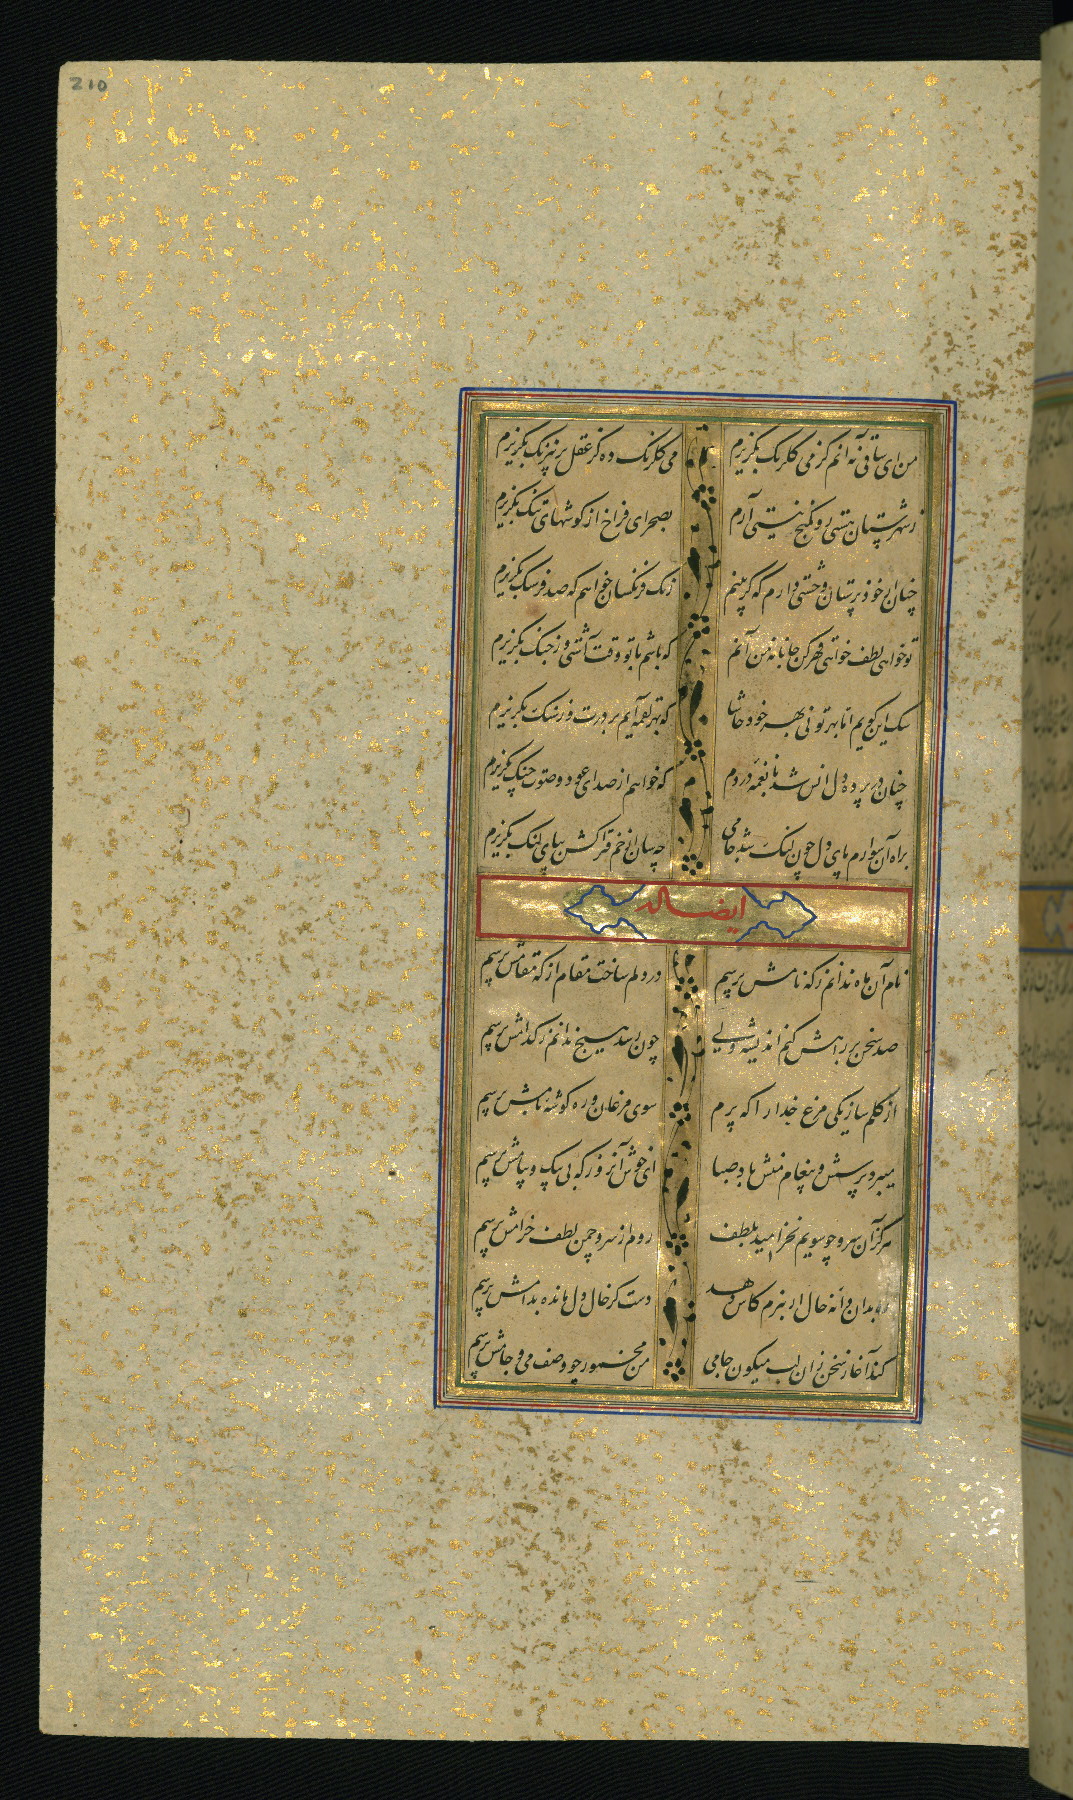 210
من ای ساقی نه آنم کز می گلرنگ بگریزم می گلرنگ ده کز عقل پر نیرنگ بگریزم
ز شهرستان هستی رو بکنج نیستی آرم بصحرای فراخ از کوشهای تنک بگریزم
چنان از خود پرستان وحشتی دارم که گر بینم زیک فرسنگشان خواهم که صد فرسنگ بگریزم
تو خواهی لطف خواهی قهر کن جانا نه من آنم که باشم با تو وقت آشتی وز جنگ بگریزم
سک این کویم اما بهر تو نی بهر خود حاشا که بهر لقمه آیم بر درت وز سنک بگریزم
چنان در پرده دل انس شد با نغمه دردم که خواهم از صدای عود و صوت چنگ بگریزم
براه آن سوارم پای دل چون لنگ شد جامی چه سان از زخم فتراکش بپای لنگ بگریزم
ایضا له
نام آن ماه ندانم ز که نامش پرسم در دلم ساخت مقام از که مقامش پرسم
صد سخن بر رهش کنم اندیشه ولی چون رسد هیچ ندانم ز کدامش پرسم
از گلم ساز یکی مرغ خدا را که پرم سوی مرغان و ره گوشه بامش پرسم
میبرد پرسش و پیغام منش باد صبا ای خوش آنروز که بی پیک و پیامش پرسم
هرگز آن سرو چو سویم نخرامید بلطف روم از سرو چمن لطف خرامش پرسم
بدان دانه خال ار بزم کاش دهد دست کز حال دل مانده بدامش پرسم
کند آغاز سخن زان لب میگون جامی من مخمور چو وصف می و جامش پرسم